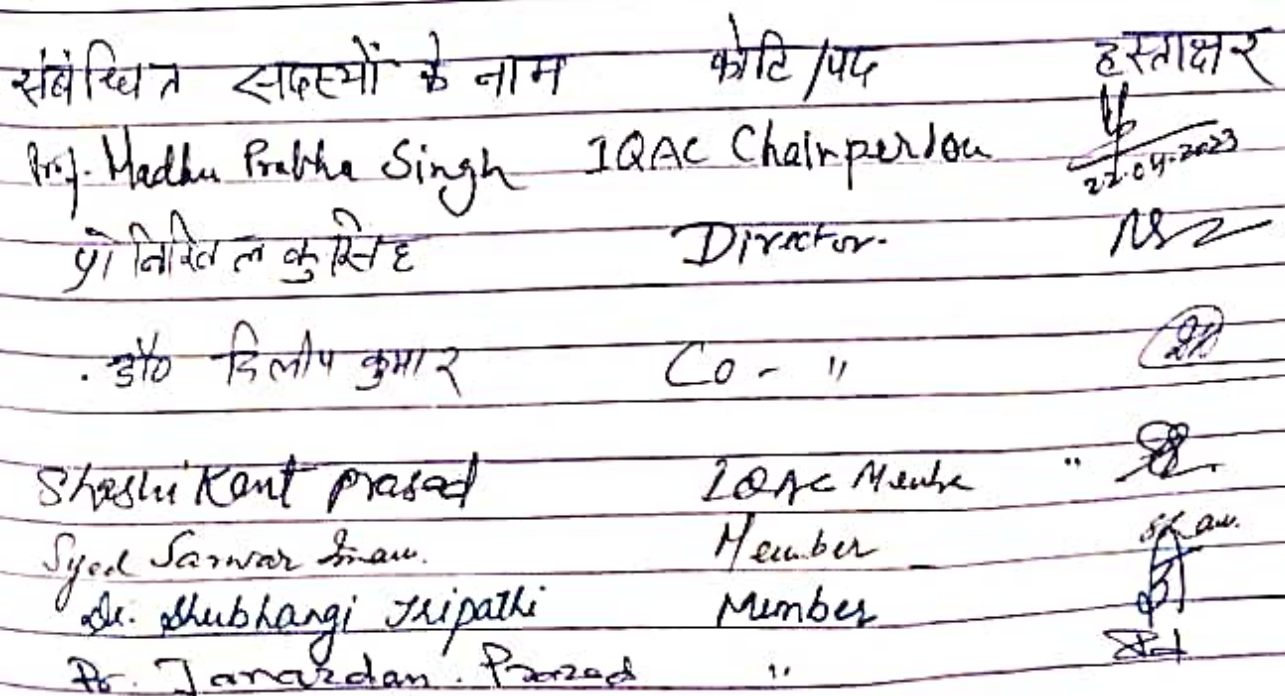 संबंधित सदस्यों के नाम कोटि/पद हस्ताक्षर
Prof. Madhu Prabha Singh IQAC Chairperson 22.04.2023
प्रो निखिल कु सिंह Director.
डॉ० दिलीप कुमार Co - "
Shashi Kant prasad IQAC Member "
Syed Sarwar Imam. Member
Dr. Shubhangi Tripathi Member
Dr. Janardan. Prasad "